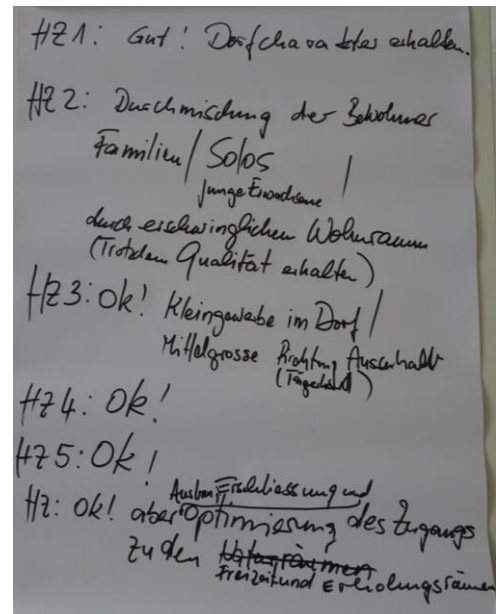 HZ1: Gut! Dorfcharakter erhalten.
HZ2: Durchmischung der Bewohner
Familien / Solos /
junge Erwachsene
durch erschwinglichen Wohnraum
(Trotzdem Qualität erhalten)
HZ3: Ok! Kleingewerbe im Dorf /
Mittelgrosse Richtung Ausserhalb
HZ4: Ok!
HZ5: Ok!
Ausbau Erschliessung und
HZ: Ok! aber Optimierung des Zugangs
zu den Naturräumen
Freizeit und Erholungsräumen